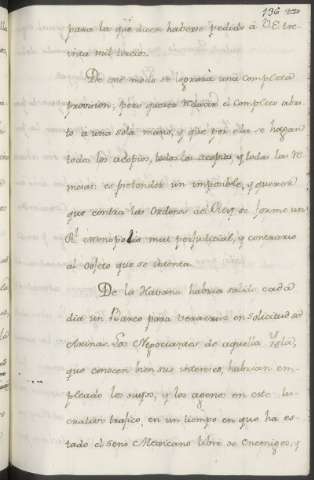 136
para la qͤ dicen haberse pedido á V.E. tre-
inta mil tercios.
De ese modo se lograria una completa
provision; pero querer el completo aba-
to à una sola mano, y que por ella se hagan
todos los acopios, todas las re
mesas: es pretender un imposible, y querer
que contra las ordenes del Rey se forme un
Rˡ. monopolio mui perjudicial, y contrario
al objeto que se intenta.
De la Havana habria salido cada
dia un Barco para Veracruz en solicitud de
Arinas. Los Negociantes de aquella Ysla,
que conocen bien sus intereses, habrian em-
pleado los suyos, y los agenos en este lu-
crativo trafico, en un tiempo en que ha es-
tado el Seno Mexicano libre de Enemigos, y